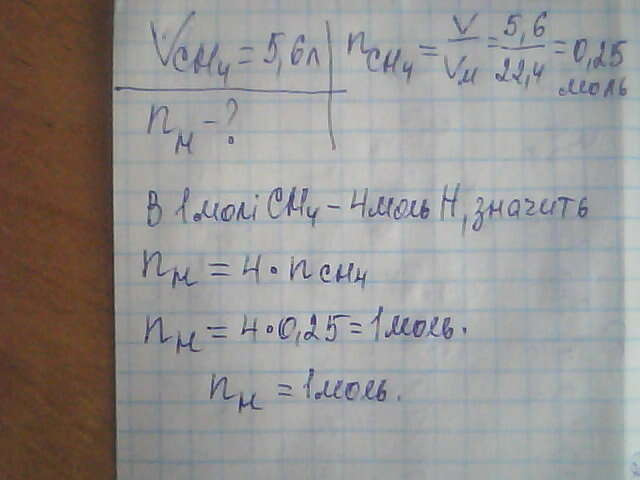 V CH₄ = 5,6л
n H - ?
n CH₄ = V/Vм = 5,6/22,4 = 0,25 моль
В 1 молі CH₄ - 4 моль H, значить
n H = 4 • n CH₄
n H = 4 • 0,25 = 1 моль.
n H = 1 моль.